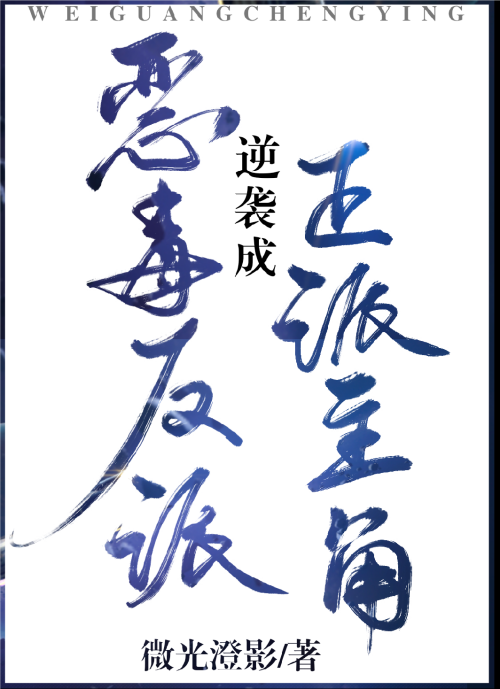 WEIGUANGCHENGYING
恶毒反派
逆袭成
正派主角
微光澄影/著